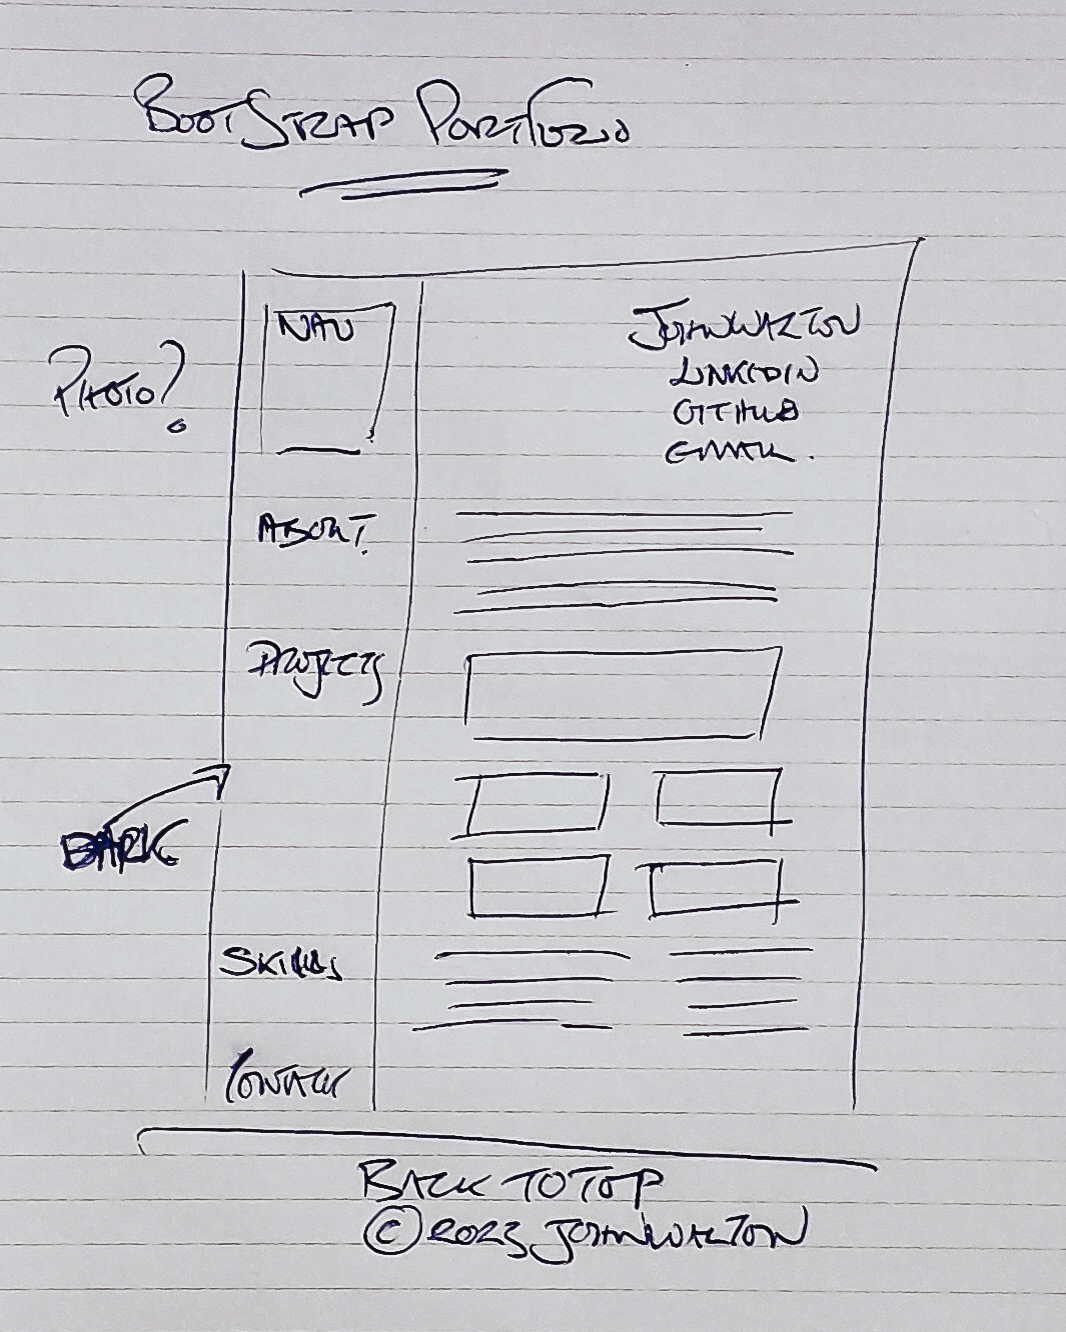 BOOTSTRAP PORTFOLIO
NAV
PHOTO?
JOHN WALTON
LINKEDIN
GITHUB
EMAIL.
ABOUT.
PROJECTS
DARK.
SKILLS
CONTACT
BACK TO TOP
© 2023 JOHN WALTON